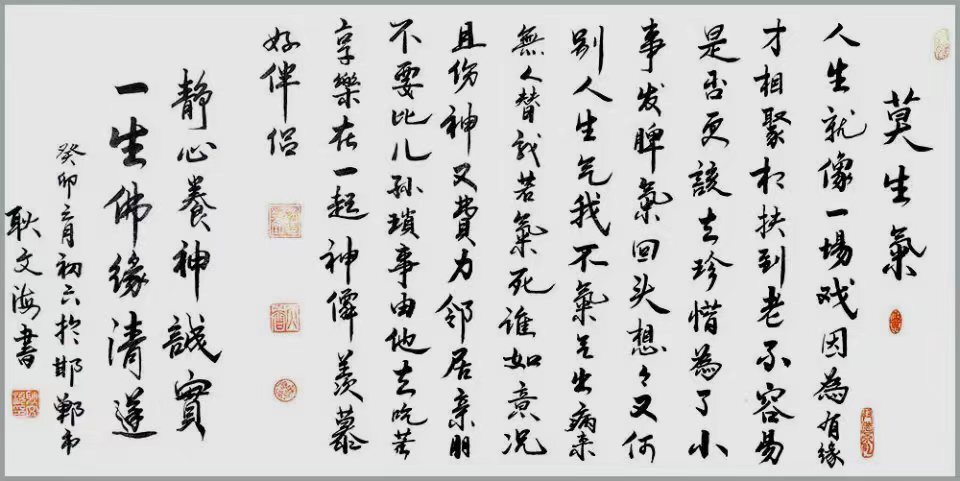 莫生氣
人生就像一場戏因為有緣
才相聚相扶到老不容易
是否更該去珍惜為了小
事发脾氣回头想々又何
别人生气我不氣气出病来
無人替我若氣死谁如意况
且伤神又費力邻居亲朋
不要比儿孙瑣事由他去吃苦
享樂在一起神僊羡慕
好伴侣
静心養神誠實
一生佛缘清
癸卯月初六於邯郸市
耿文海書